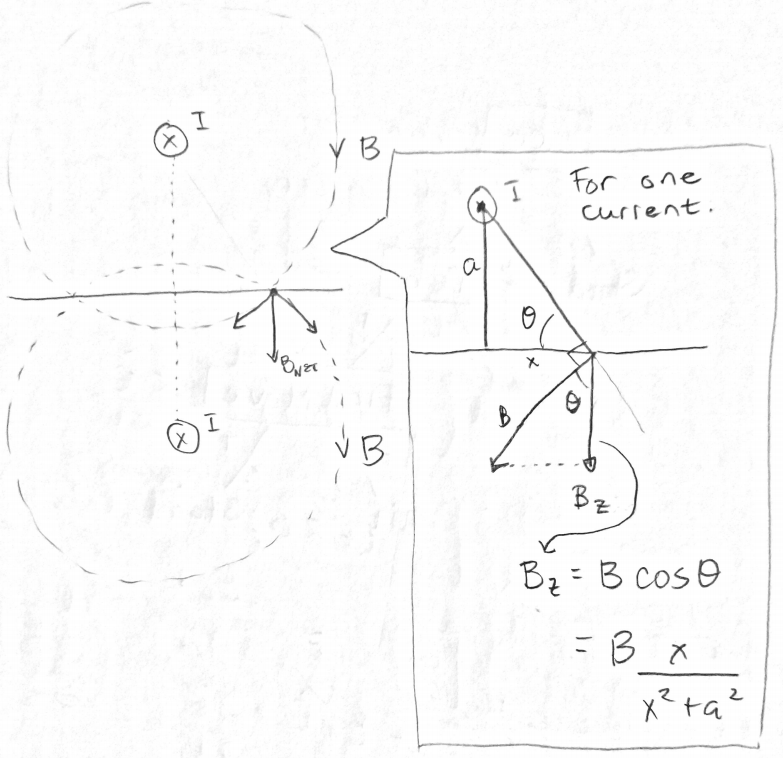 I
B
B_NET
I
B
For one
current.
I
a
θ
x
B
θ
B_z
B_z = B cosθ
= B x / x² + a²